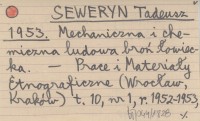 SEWERYN Tadeusz
1953. Mechaniczna i che-
miczna ludowa broń łowiec-
ka. — Prace i Materiały
Etnograficzne (Wrocław,
Kraków) t. 10, nr 1, r. 1952-1953,